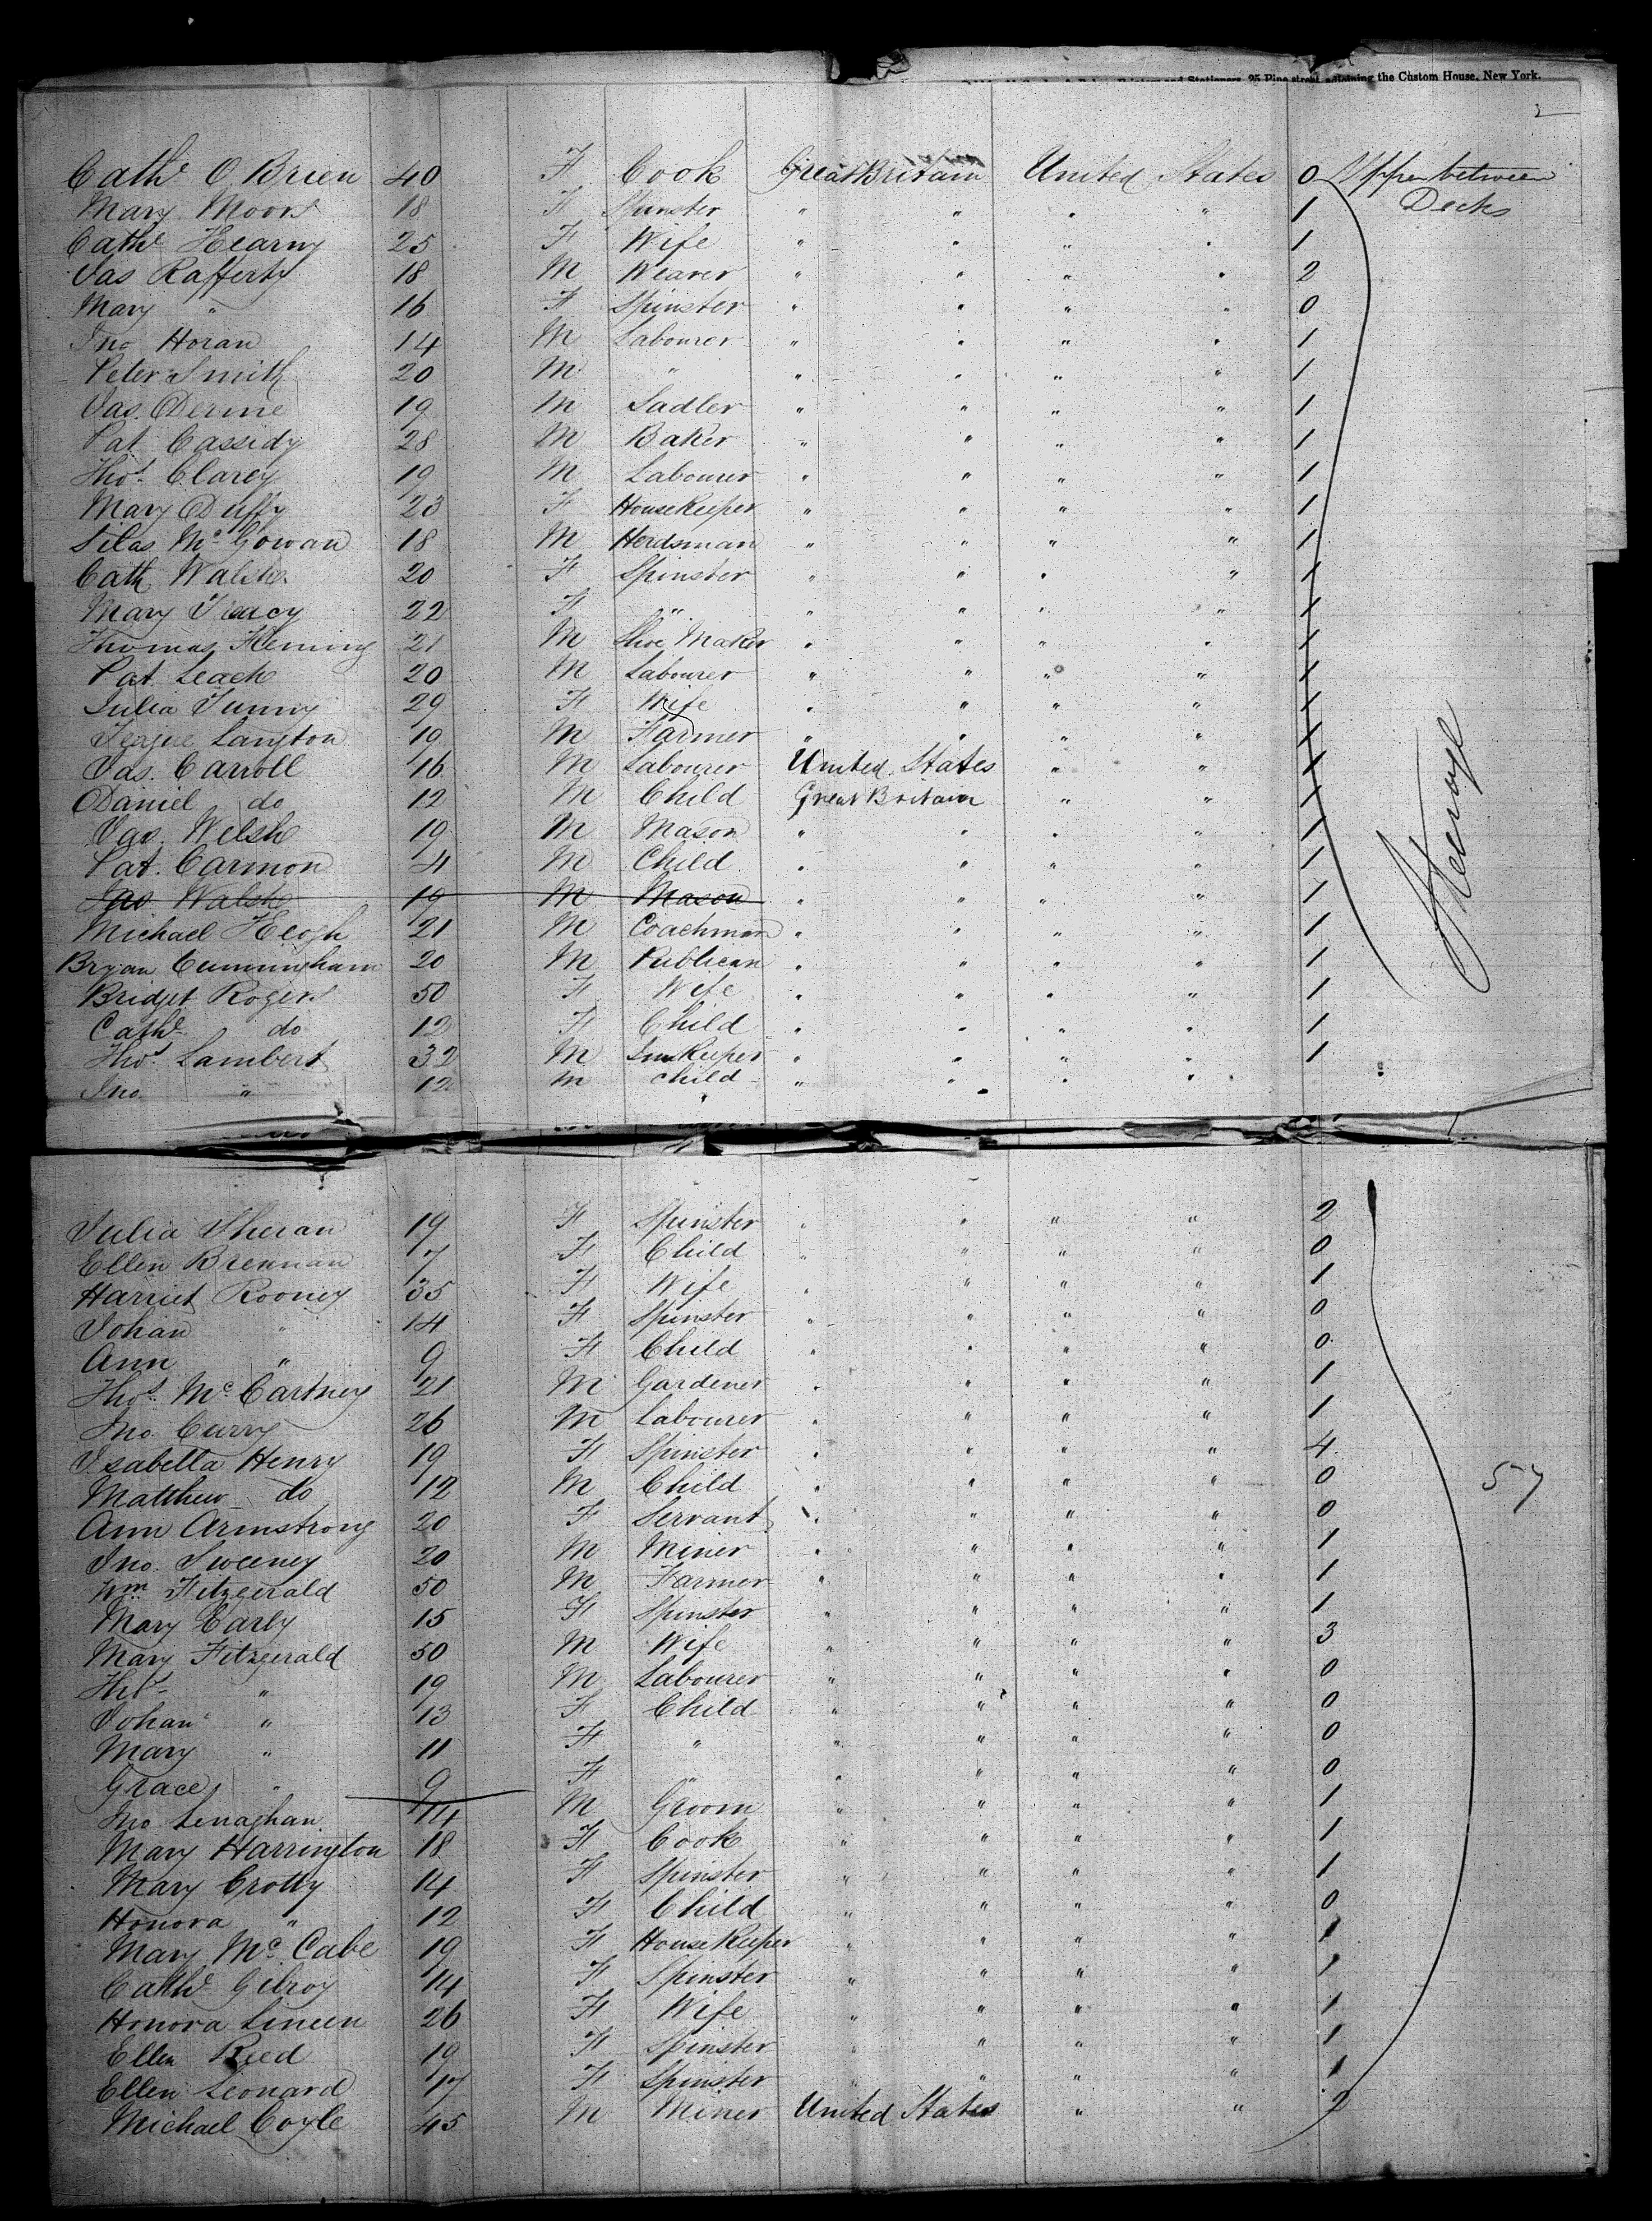 25 Pine street adjoining the Custom House, New York.
2
Cathe O Brien 40 F Cook Great Britain United States 0 Upper between
Mary Moors 18 F Spinster " " " " 1 Decks
Cathe Kearny 25 F Wife " " " " 1
Jas Rafferty 18 M Weaver " " " " 2
Mary " 16 F Spinster " " " " 0
Jno Horan 14 M Labourer " " " " 1
Peter Smith 20 M " " " " " 1
Jas. Derine 19 M Sadler " " " " 1
Pat Cassidy 28 M Baker " " " " 1
Thos. Clarey 19 M Labourer " " " " 1
Mary Duffy 23 F HouseKeeper " " " " 1
Silas Mc Gowan 18 M Herdsman " " " " 1
Cath Walsh 20 F Spinster " " " " 1
Mary Tracy 22 F " " " " " 1
Thomas Fleming 21 M Shoe Maker " " " " 1
Pat Leach 20 M Labourer " " " " 1
Julia Tunny 29 F Wife " " " " 1
Teague Langton 19 M Farmer " " " " 1
Jas. Carroll 16 M Labourer United States " " 1
Daniel do 12 M Child Great Britain " " 1
Jas. Welsh 19 M Mason " " " " 1
Pat. Carmon 4 M Child " " " " 1
Jas Walsh 19 M Mason " " " " 1
Michael Keogh 21 M Coachman " " " " 1
Bryan Cunningham 20 M Publican " " " " 1
Bridget Rogers 50 F Wife " " " " 1
Cathe do 12 F Child " " " " 1
Thos. Lambert 32 M InnKeeper " " " " 1
Jno. " 12 M child " " " "
Steerage
Julia Sheran 19 F Spinster " " " " 2
Ellen Brennan 7 F Child " " " " 0
Harriet Rooney 35 F Wife " " " " 1
Johan " 14 F Spinster " " " " 0
Ann " 9 F Child " " " " 0
Thos. Mc Cartney 21 M Gardener " " " " 1
Jno. Curry 26 M Labourer " " " " 1
Isabella Henry 19 F Spinster " " " " 4
Matthew do 12 M Child " " " " 0
57
Ann Armstrong 20 F Servant " " " " 0
Jno. Sweeney 20 M Miner " " " " 1
Wm. Fitzgerald 50 M Farmer " " " " 1
Mary Early 15 F Spinster " " " " 1
Mary Fitzgerald 50 M Wife " " " " 3
Thos. " 19 M Labourer " " " " 0
Johan " 13 F Child " " " " 0
Mary " 11 F " " " " " 0
Grace " 9 F " " " " " 0
Jno Lenaghan 14 M Groom " " " " 1
Mary Harrington 18 F Cook " " " " 1
Mary Crotty 14 F Spinster " " " " 1
Honora " 12 F Child " " " " 0
Mary Mc Cabe 19 F HouseKeeper " " " " 1
Cathe Gilroy 14 F Spinster " " " " 1
Honora Lineen 26 F Wife " " " " 1
Ellen Reed 19 F Spinster " " " " 1
Ellen Leonard 17 F Spinster " " " " 1
Michael Coyle 45 M Miner United States " " 2